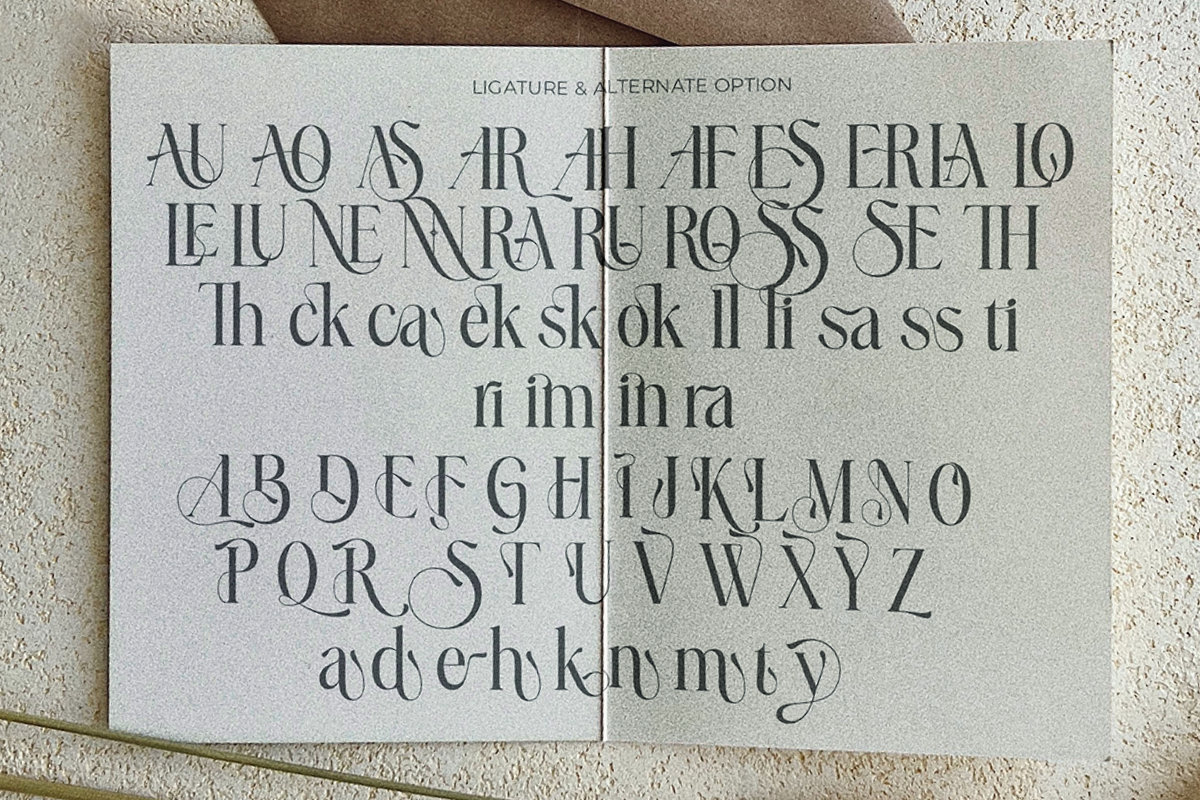 LIGATURE & ALTERNATE OPTION
AU AO AS AR AH AF ES ER LA LO
LE LU NE NN RA RU RO SS SE TH
Th ck ca ek sk ok ll li sa ss ti
ri im in ra
A B D E F G H I J K L M N O
P Q R S T U V W X Y Z
a d e h k n m t y